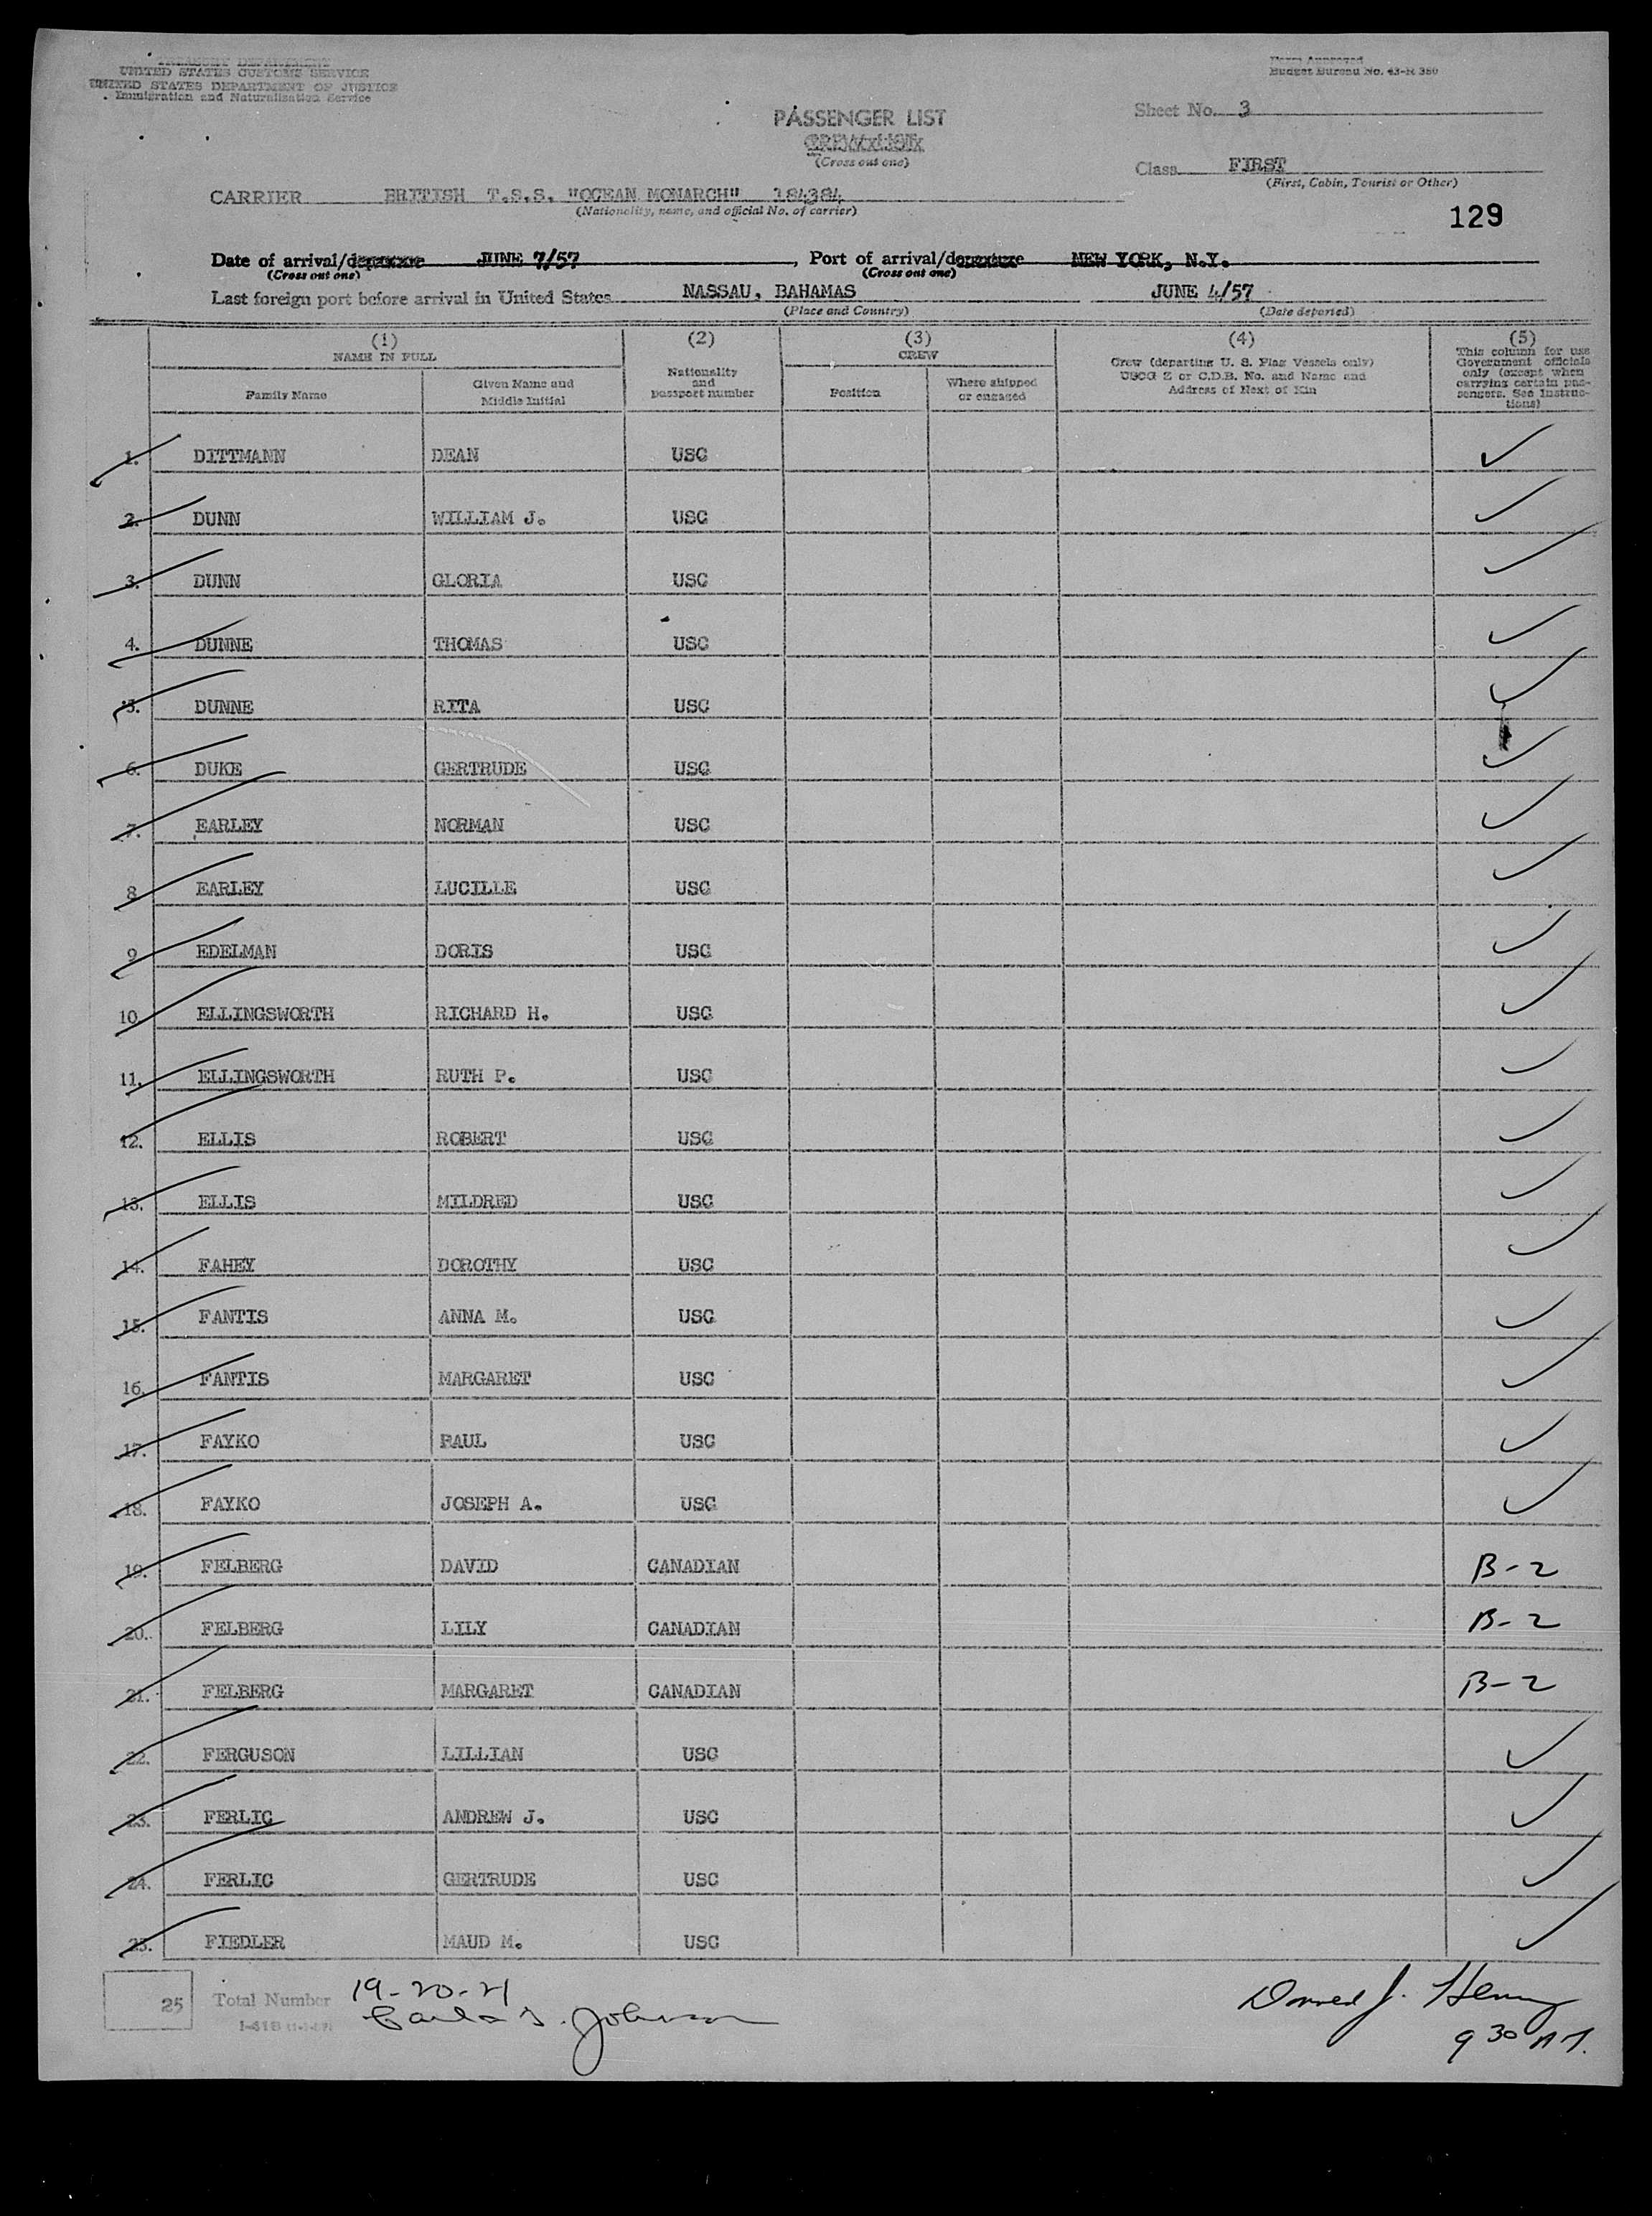 TREASURY DEPARTMENT
UNITED STATES CUSTOMS SERVICE
UNITED STATES DEPARTMENT OF JUSTICE
Immigration and Naturalization Service
Form Approved
Budget Bureau No. 43-R 380
PASSENGER LIST
CREW LIST
(Cross out one)
Sheet No. 3
Class FIRST
(First, Cabin, Tourist or Other)
CARRIER BRITISH T.S.S. "OCEAN MONARCH" 184384
(Nationality, name, and official No. of carrier)
129
Date of arrival/departure JUNE 7/57, Port of arrival/departure NEW YORK, N.Y.
(Cross out one) (Cross out one)
Last foreign port before arrival in United States NASSAU, BAHAMAS JUNE 4/57
(Place and Country) (Date departed)
(1) (2) (3) (4) (5)
NAME IN FULL
Family Name
Given Name and Middle Initial
Nationality and passport number
CREW
Position
Where shipped or engaged
Crew (departing U. S. Flag Vessels only)
USCG Z or C.D.B. No. and Name and
Address of Next of Kin
This column for use
Government officials
only (except when
carrying certain pas-
sengers. See Instruc-
tions)
1. DITTMANN DEAN USC ✓
2. DUNN WILLIAM J. USC ✓
3. DUNN GLORIA USC ✓
4. DUNNE THOMAS USC ✓
5. DUNNE RITA USC ✓
6. DUKE GERTRUDE USC ✓
7. EARLEY NORMAN USC ✓
8 EARLEY LUCILLE USC ✓
9 EDELMAN DORIS USC ✓
10 ELLINGSWORTH RICHARD H. USC ✓
11. ELLINGSWORTH RUTH P. USC ✓
12. ELLIS ROBERT USC ✓
13. ELLIS MILDRED USC ✓
14. FAHEY DOROTHY USC ✓
15. FANTIS ANNA M. USC ✓
16. FANTIS MARGARET USC ✓
17. FAYKO PAUL USC ✓
18. FAYKO JOSEPH A. USC ✓
19. FELBERG DAVID CANADIAN B-2
20. FELBERG LILY CANADIAN B-2
21. FELBERG MARGARET CANADIAN B-2
22. FERGUSON LILLIAN USC ✓
23. FERLIC ANDREW J. USC ✓
24. FERLIC GERTRUDE USC ✓
25. FIEDLER MAUD M. USC ✓
25 Total Number 19-20-21
Johnson
J. Henry
9 30